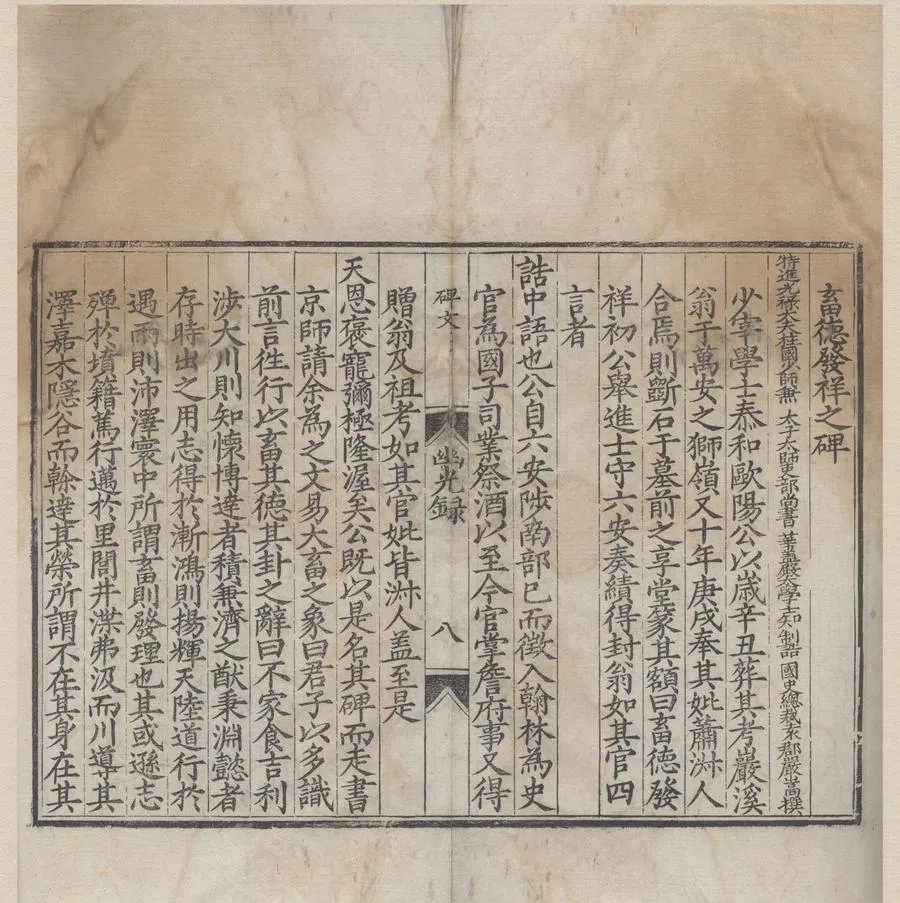 畜德發祥之碑
特進光祿大夫柱國少師兼 太子太師吏部尚書 華蓋殿大學士知 制誥 國史總裁 郡嚴嵩撰
少宰學士泰和歐陽公以歲辛丑葬其考巖溪
翁于萬安之獅嶺又十年庚戌奉其妣蕭淑人
合焉則斵石于墓前之享堂篆其額曰畜德發
祥初公舉進士守六安奏績得封翁如其官四
言者
誥中語也公自六安陟南部已而徵入翰林為史
官為國子司業祭酒以至今官掌詹府事又得
碑文 幽光錄 八
贈翁及祖考如其官妣皆淑人盖至是
天恩褒寵彌極隆渥矣公既以是名其碑而走書
京師請余為之文易大畜之象曰君子以多識
前言往行以畜其德其卦之辭曰不家食吉利
涉大川則知懷博達者積兼濟之猷秉淵懿者
存時出之用志得於漸鴻則揚輝天陸道行於
遇雨則沛澤寰中所謂畜則發理也其或遜志
殫於墳籍篤行邁於里閭井渫弗汲而川導其
澤嘉木隱谷而榦達其榮所謂不在其身在其